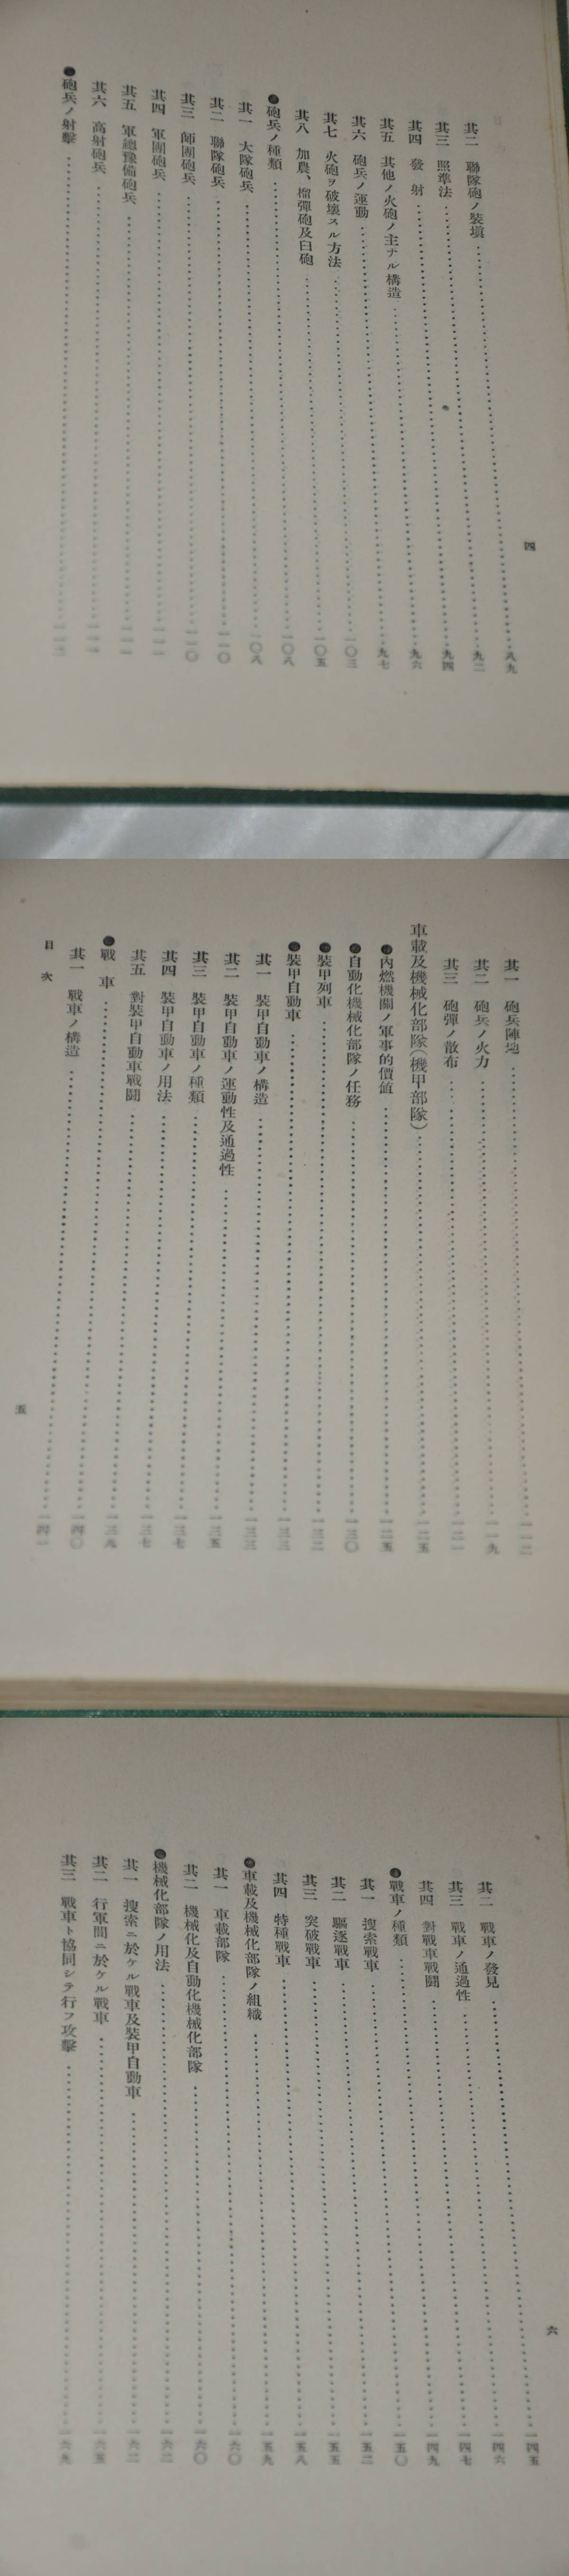 四
其二 聯隊砲ノ裝塡……八九
其三 照準法……九二
其四 發射……九四
其五 其他ノ火砲ノ主ナル構造……九六
其六 砲兵ノ運動……九七
其七 火砲ヲ破壞スル方法……一〇三
其八 加農、榴彈砲及臼砲……一〇五
●砲兵ノ種類……一〇八
其一 大隊砲兵……一〇八
其二 聯隊砲兵……一一〇
其三 師團砲兵……一一〇
其四 軍團砲兵……一一一
其五 軍總豫備砲兵……一一一
其六 高射砲兵……一一一
●砲兵ノ射擊……一一二
其一 砲兵陣地……一一二
其二 砲兵ノ火力……一一九
其三 砲彈ノ散布……一二一
車載及機械化部隊(機甲部隊)……一二五
●內燃機關ノ軍事的價値……一二五
●自動化機械化部隊ノ任務……一三〇
●裝甲列車……一三二
●裝甲自動車……一三三
其一 裝甲自動車ノ構造……一三三
其二 裝甲自動車ノ運動性及通過性……一三五
其三 裝甲自動車ノ種類……一三七
其四 裝甲自動車ノ用法……一三七
其五 對裝甲自動車戰鬪……一三九
●戰車……一四〇
其一 戰車ノ構造……一四一
目次
五
六
其二 戰車ノ發見……一四五
其三 戰車ノ通過性……一四六
其四 對戰車戰鬪……一四七
●戰車ノ種類……一四九
其一 搜索戰車……一五〇
其二 驅逐戰車……一五二
其三 突破戰車……一五五
其四 特種戰車……一五八
●車載及機械化部隊ノ組織……一五九
其一 車載部隊……一六〇
其二 機械化及自動化機械化部隊……一六〇
●機械化部隊ノ用法……一六二
其一 搜索ニ於ケル戰車及裝甲自動車……一六二
其二 行軍間ニ於ケル戰車……一六五
其三 戰車ト協同シテ行フ攻擊……一六九